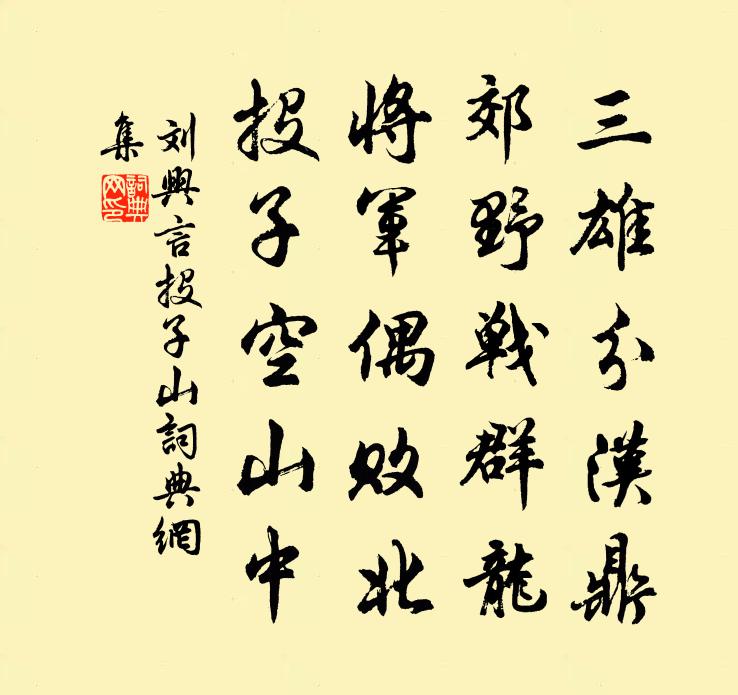 三雄分漢鼎
郊野戰群龍
將軍偶敗北
投子空山中
刘興言投子山詞典網
集
詞典
网印